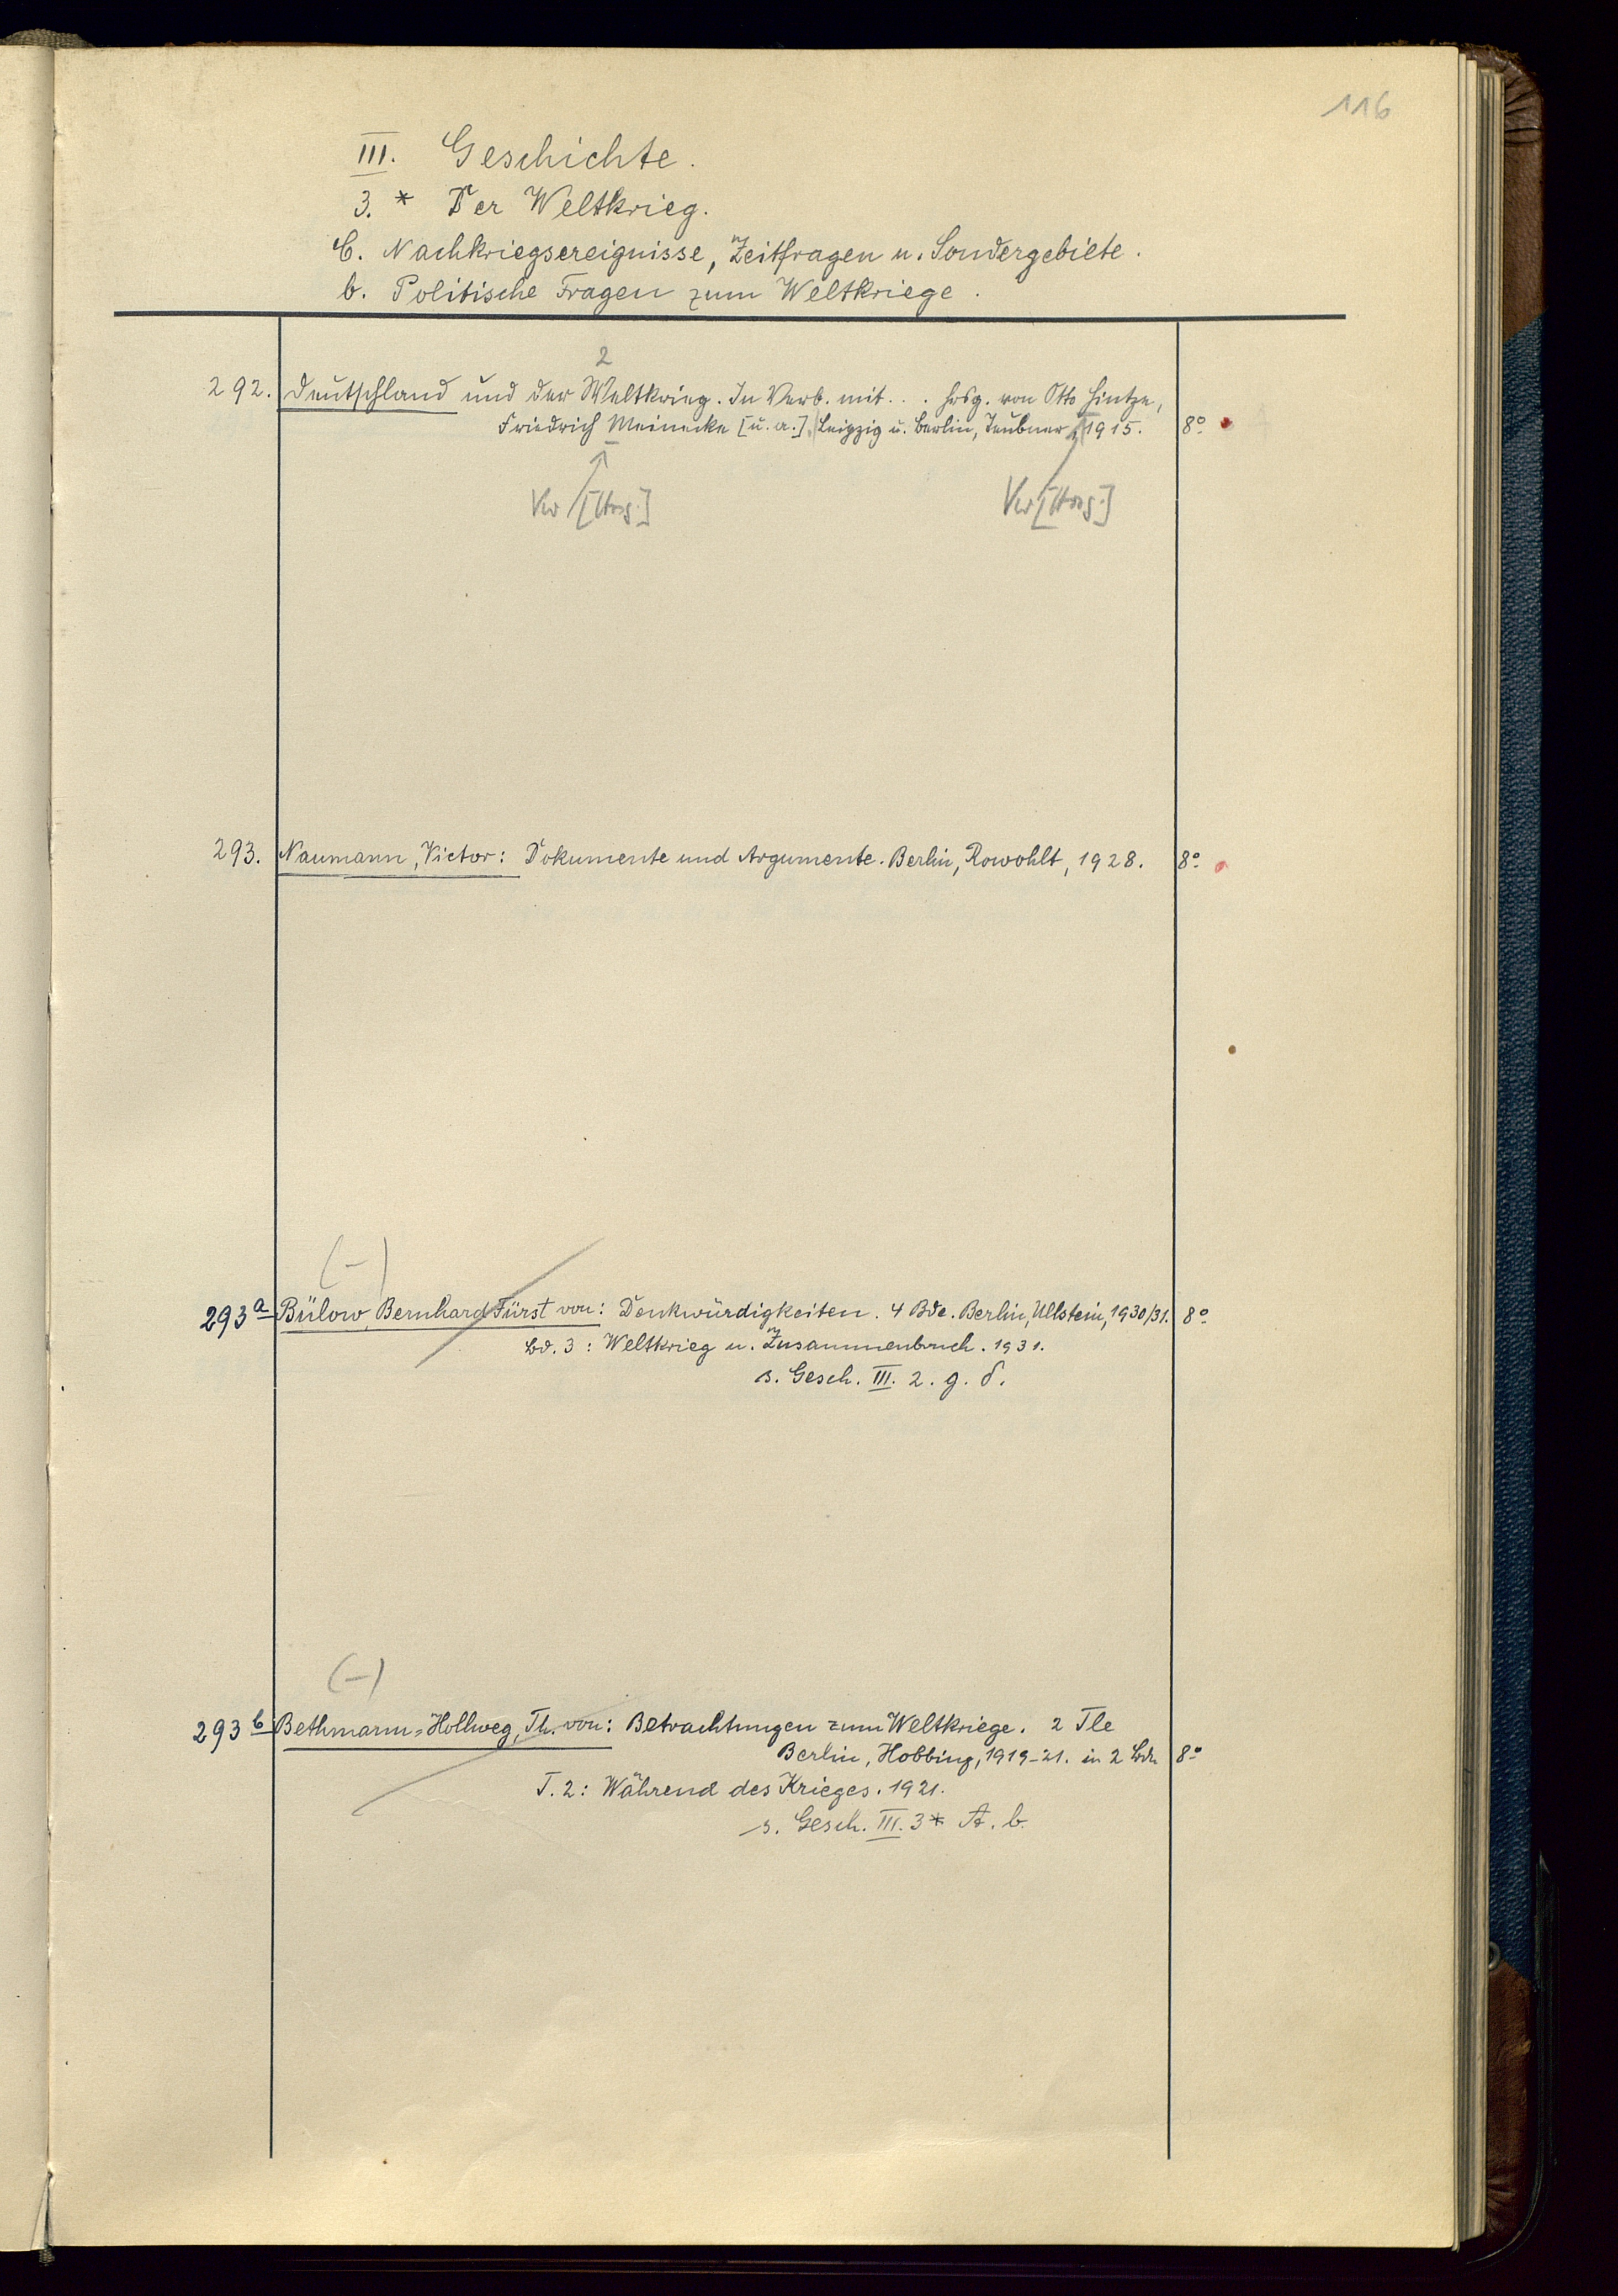 116
III. Geschichte.
3. * Der Weltkrieg.
C. Nachkriegsereignisse, Zeitfragen u. Sondergebiete.
b. Politische Fragen zum Weltkriege.
2
292. Deutschland und der Weltkrieg. In Verb. mit... hrsg. von Otto Hintze,
Friedrich Meinecke [u. a.]. Leipzig u. Berlin, Teubner, 1915. 8°
Vw [Hrsg.] Vw [Hrsg.]
293. Naumann, Victor: Dokumente und Argumente. Berlin, Rowohlt, 1928. 8°
(-)
293a Bülow, Bernhard Fürst von: Denkwürdigkeiten. 4 Bde. Berlin, Ullstein, 1930/31. 8°
Bd. 3: Weltkrieg u. Zusammenbruch. 1931.
s. Gesch. III. 2. g. δ.
(-)
293b Bethmann-Hollweg, Th. von: Betrachtungen zum Weltkriege. 2 Tle
Berlin, Hobbing, 1919-21. in 2 Bdn 8°
T. 2: Während des Krieges. 1921.
s. Gesch. III. 3* A. b.